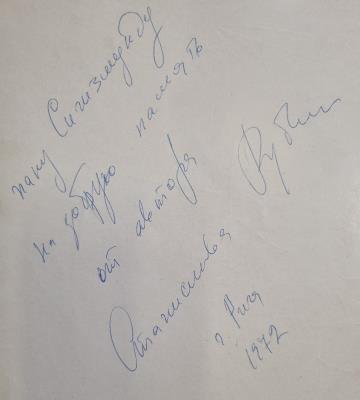 пану Сигизмунду
на добрую память
от автора
Станислава
г. Рига
1972